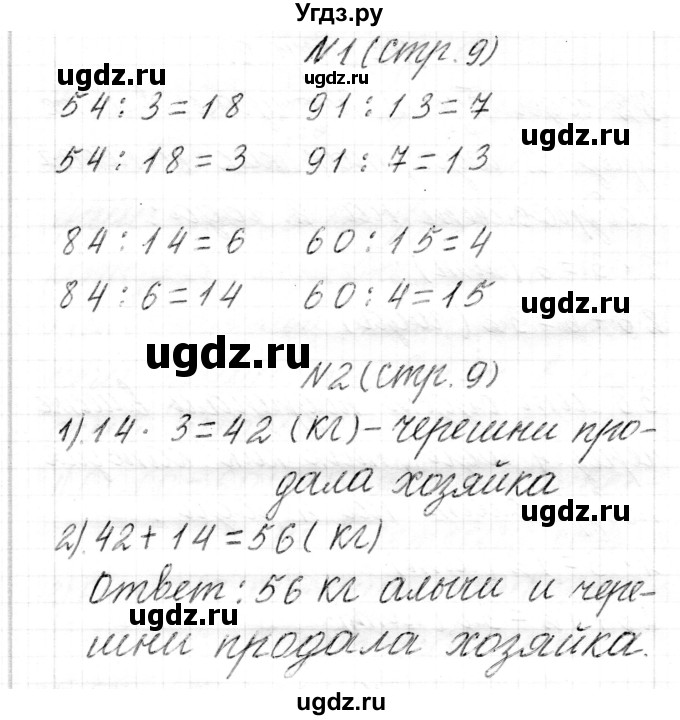 Угдз.ру
N1 (стр. 9)
ugdz.ru
ugdz.ru
54 : 3 = 18 91 : 13 = 7
ugdz.ru
54 : 18 = 3 91 : 7 = 13
84 : 14 = 6 60 : 15 = 4
84 : 6 = 14 60 : 4 = 15
ugdz.ru
ugdz.ru
N2 (стр. 9)
1). 14 · 3 = 42 (кг) – черешни про-
дала хозяйка
ugdz.ru
2). 42 + 14 = 56 (кг)
Ответ: 56 кг алычи и чере-
ugdz.ru
шни продала хозяйка.
ugdz.ru